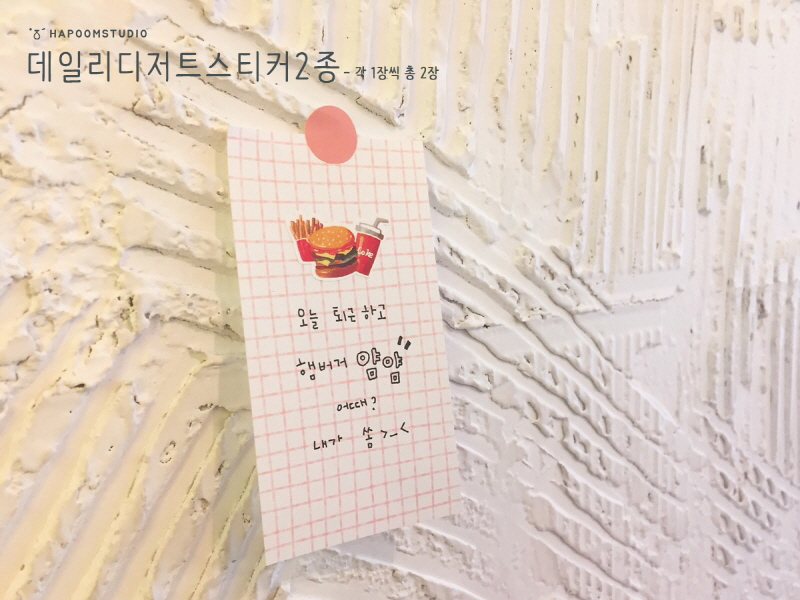 HAPOOMSTUDIO
데일리디저트스티커2종 - 각 1장씩 총 2장
오늘 퇴근하고
햄버거 얌얌
어때?
내가 쏨 >_<